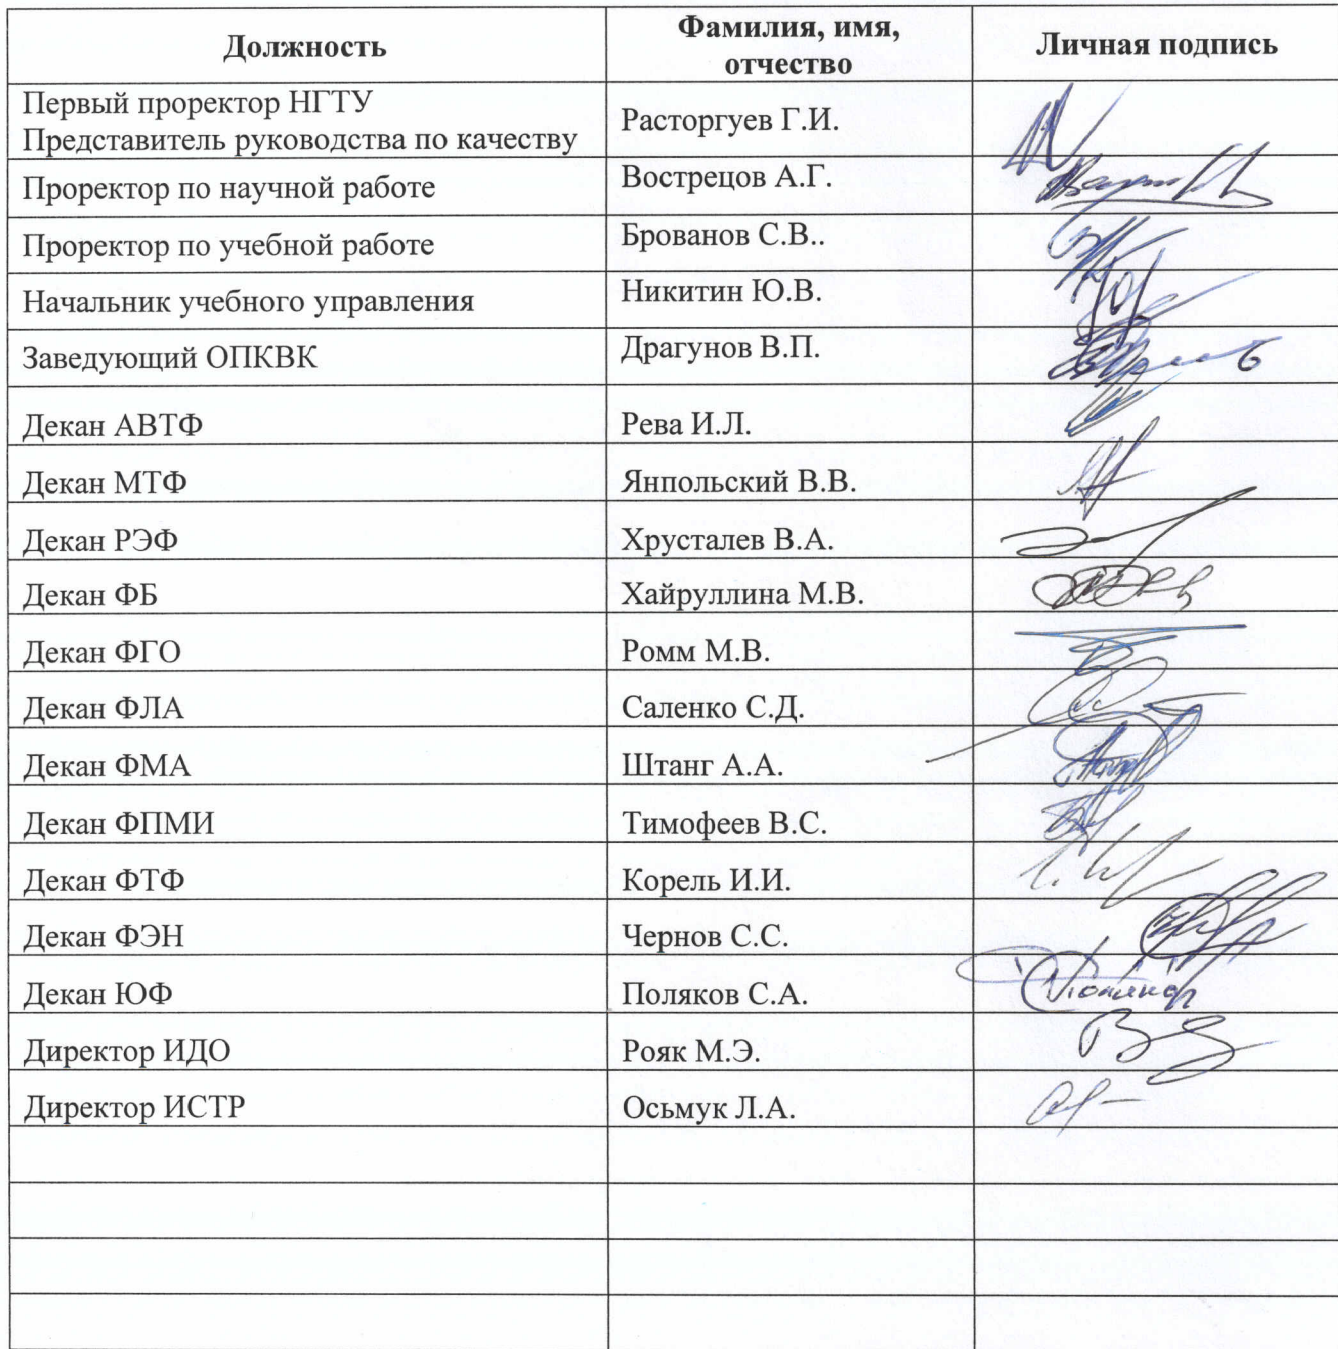 Должность
Фамилия, имя,
отчество
Личная подпись
Первый проректор НГТУ
Представитель руководства по качеству
Расторгуев Г.И.
Проректор по научной работе
Вострецов А.Г.
Проректор по учебной работе
Брованов С.В..
Начальник учебного управления
Никитин Ю.В.
Заведующий ОПКВК
Драгунов В.П.
Декан АВТФ
Рева И.Л.
Декан МТФ
Янпольский В.В.
Декан РЭФ
Хрусталев В.А.
Декан ФБ
Хайруллина М.В.
Декан ФГО
Ромм М.В.
Декан ФЛА
Саленко С.Д.
Декан ФМА
Штанг А.А.
Декан ФПМИ
Тимофеев В.С.
Декан ФТФ
Корель И.И.
Декан ФЭН
Чернов С.С.
Декан ЮФ
Поляков С.А.
Директор ИДО
Рояк М.Э.
Директор ИСТР
Осьмук Л.А.